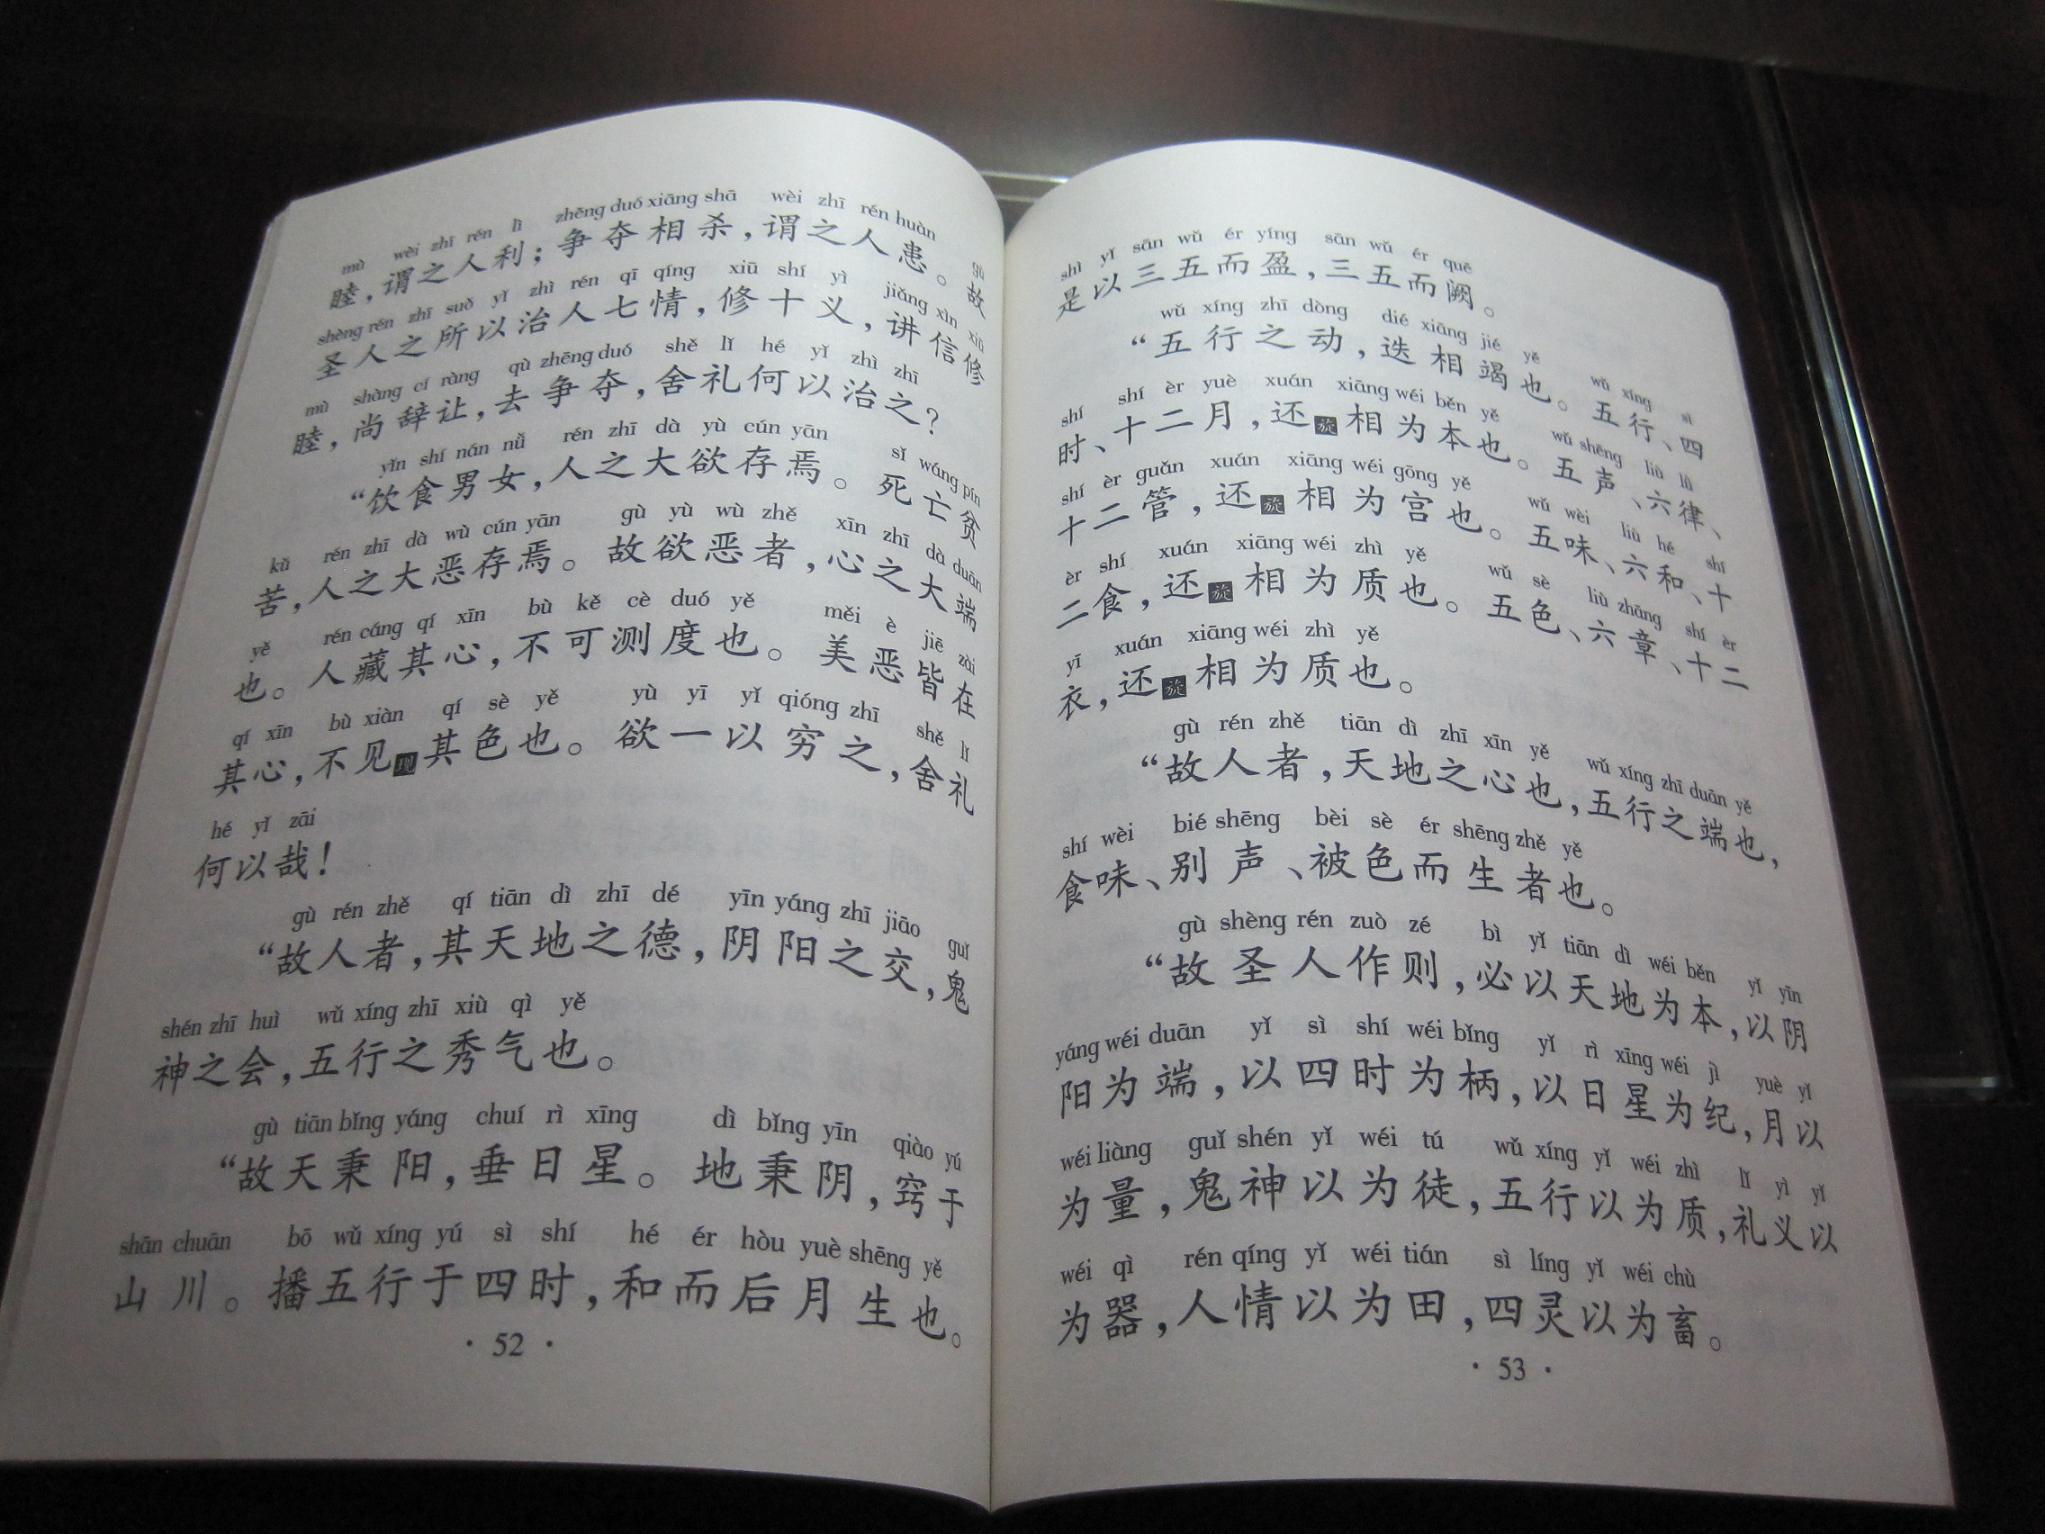 mù wèi zhī rén lì zhēng duó xiāng shā wèi zhī rén huàn gù
睦，谓之人利；争夺相杀，谓之人患。故
shèng rén zhī suǒ yǐ zhì rén qī qíng xiū shí yì jiǎng xìn xiū
圣人之所以治人七情，修十义，讲信修
mù shàng cí ràng qù zhēng duó shě lǐ hé yǐ zhì zhī
睦，尚辞让，去争夺，舍礼何以治之？
yǐn shí nán nǚ rén zhī dà yù cún yān sǐ wáng pín
“饮食男女，人之大欲存焉。死亡贫
kǔ rén zhī dà wù cún yān gù yù wù zhě xīn zhī dà duān
苦，人之大恶存焉。故欲恶者，心之大端
yě rén cáng qí xīn bù kě cè duó yě měi è jiē zài
也。人藏其心，不可测度也。美恶皆在
qí xīn bù xiàn qí sè yě yù yī yǐ qióng zhī shě lǐ
其心，不见现其色也。欲一以穷之，舍礼
hé yǐ zāi
何以哉！
gù rén zhě qí tiān dì zhī dé yīn yáng zhī jiāo guǐ
“故人者，其天地之德，阴阳之交，鬼
shén zhī huì wǔ xíng zhī xiù qì yě
神之会，五行之秀气也。
gù tiān bǐng yáng chuí rì xīng dì bǐng yīn qiào yú
“故天秉阳，垂日星。地秉阴，窍于
shān chuān bō wǔ xíng yú sì shí hé ér hòu yuè shēng yě
山川。播五行于四时，和而后月生也。
· 52 ·
shì yǐ sān wǔ ér yíng sān wǔ ér quē
是以三五而盈，三五而阙。
wǔ xíng zhī dòng dié xiāng jié yě wǔ xíng sì
“五行之动，迭相竭也。五行、四
shí shí èr yuè xuán xiāng wéi běn yě wǔ shēng liù lǜ
时、十二月，还旋相为本也。五声、六律、
shí èr guǎn xuán xiāng wéi gōng yě wǔ wèi liù hé shí
十二管，还旋相为宫也。五味、六和、十
èr shí xuán xiāng wéi zhì yě wǔ sè liù zhāng shí èr
二食，还旋相为质也。五色、六章、十二
yī xuán xiāng wéi zhì yě
衣，还旋相为质也。
gù rén zhě tiān dì zhī xīn yě wǔ xíng zhī duān yě
“故人者，天地之心也，五行之端也，
shí wèi bié shēng bèi sè ér shēng zhě yě
食味、别声、被色而生者也。
gù shèng rén zuò zé bì yǐ tiān dì wéi běn yǐ yīn
“故圣人作则，必以天地为本，以阴
yáng wéi duān yǐ sì shí wéi bǐng yǐ rì xīng wéi jì yuè yǐ
阳为端，以四时为柄，以日星为纪，月以
wéi liàng guǐ shén yǐ wéi tú wǔ xíng yǐ wéi zhì lǐ yì yǐ
为量，鬼神以为徒，五行以为质，礼义以
wéi qì rén qíng yǐ wéi tián sì líng yǐ wéi chù
为器，人情以为田，四灵以为畜。
· 53 ·